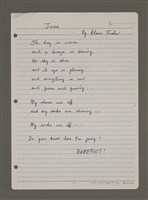 June
By Steven Taylor
The day is warm
and a breeze is blowing,
the sky is blue
and its age is glowing,
and everything is new
and green and growing...
My shoes are off
and my socks are showing...
My socks are off...
Do you know how I'm going?
BAREFOOT!